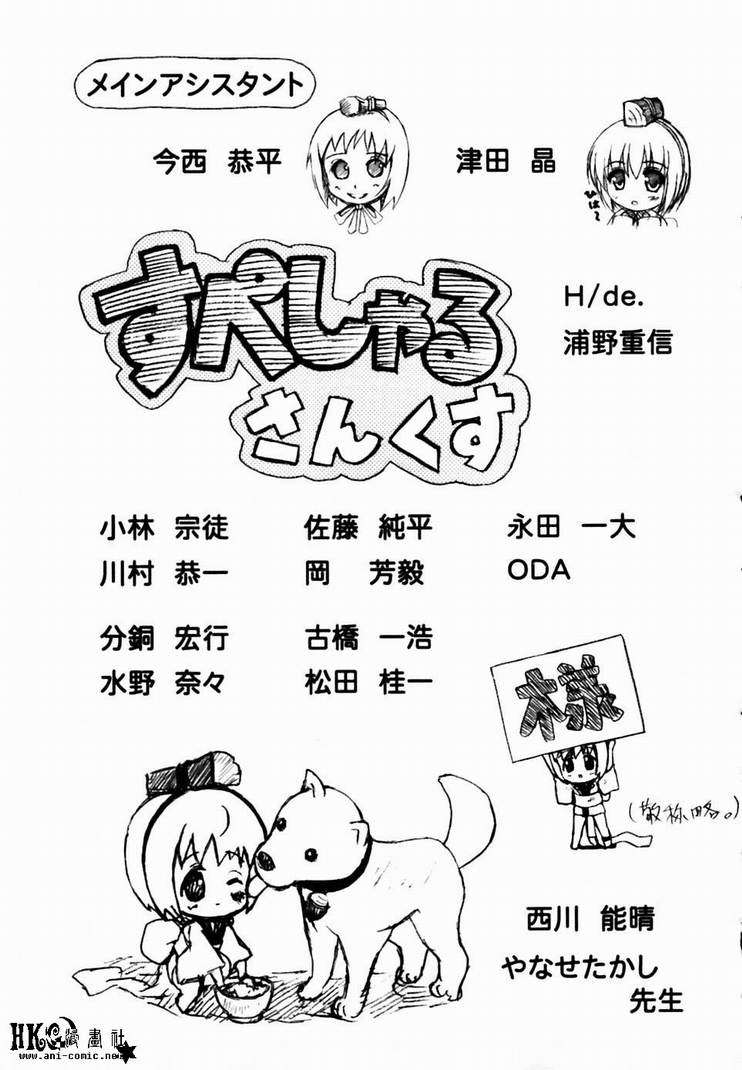 メインアシスタント
今西 恭平
津田 晶
ひは〜
すぺしゃる
さんくす
H/de.
浦野重信
小林 宗徒 佐藤 純平 永田 一大
川村 恭一 岡 芳毅 ODA
分銅 宏行 古橋 一浩
水野 奈々 松田 桂一
様
(敬称略。)
西川 能晴
やなせたかし
先生
HKG漫畫社
www.ani-comic.net